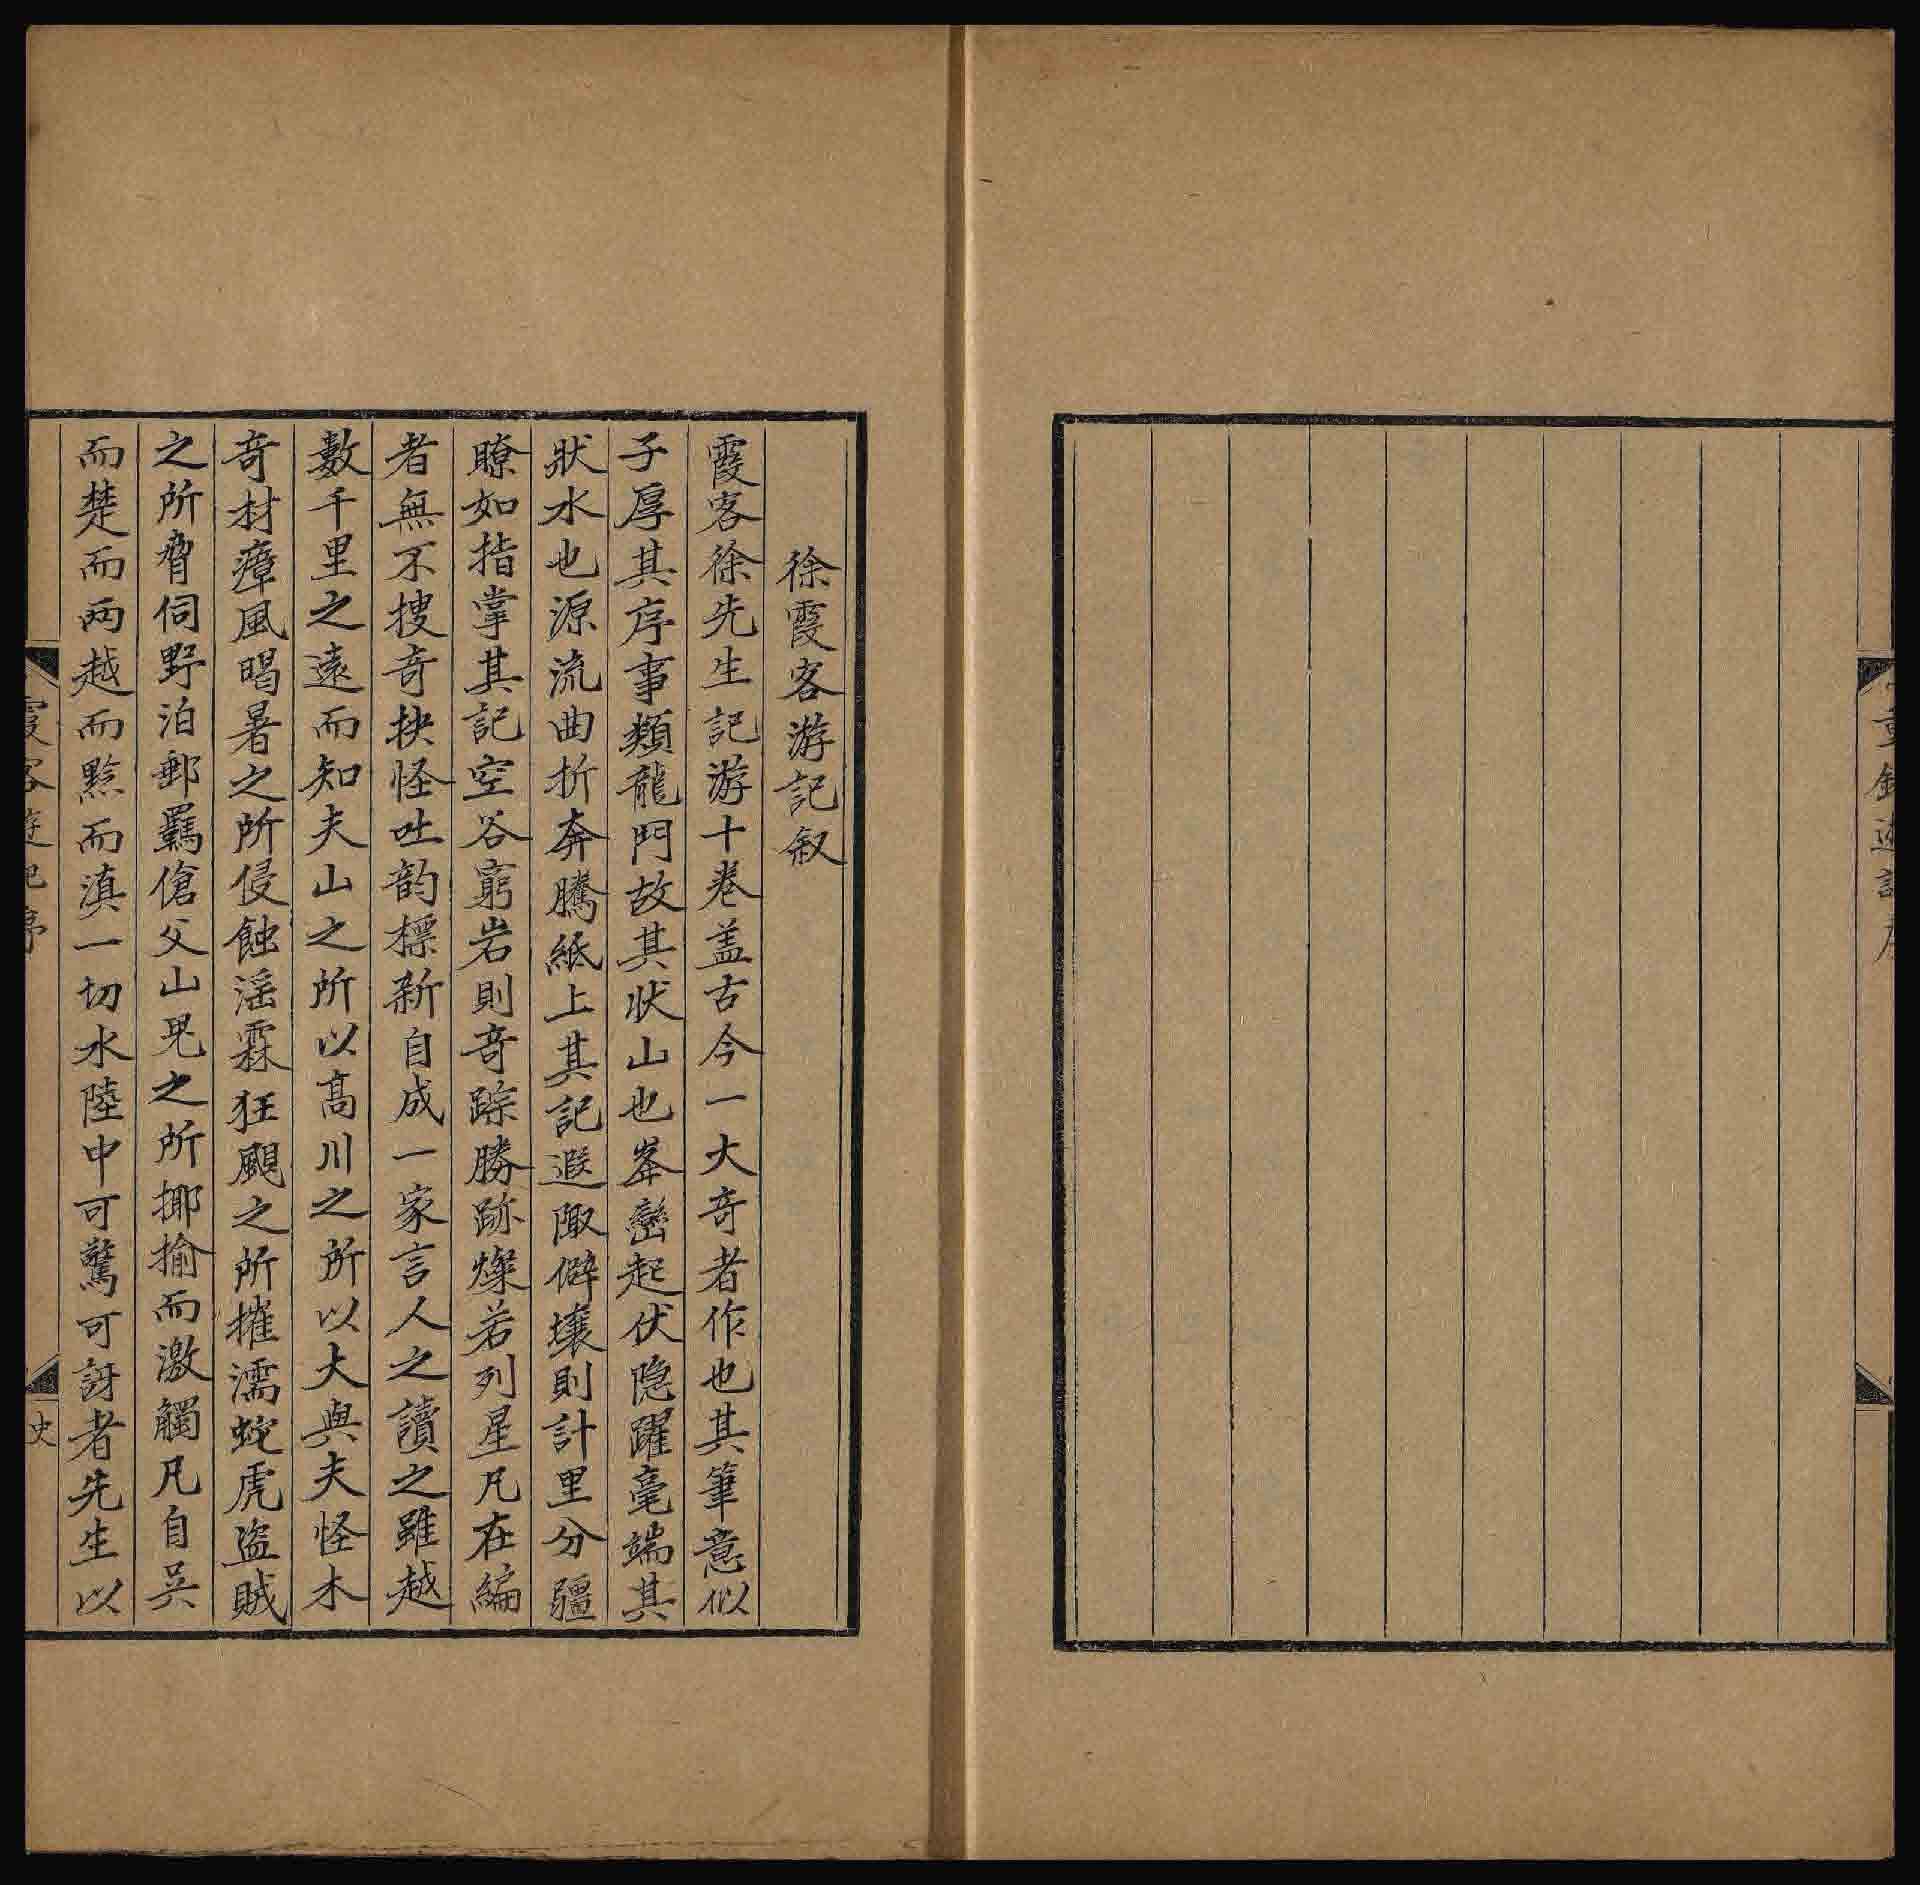 徐霞客游記叙
霞客徐先生記游十卷盖古今一大竒者作也其筆意似
子厚其序事類龍門故其狀山也峯巒起伏隐躍毫端其
狀水也源流曲折奔騰紙上其記遐陬僻壤則計里分疆
瞭如指掌其記空谷窮岩則竒踪勝跡燦若列星凡在編
者無不搜竒抉怪吐韵標新自成一家言人之讀之雖越
數千里之遠而知夫山之所以髙川之所以大與夫怪木
竒材瘴風暍暑之所侵蝕滛霖狂颶之所摧濡蛇虎盗賊
之所脅伺野泊郵羈傖父山鬼之所揶揄而激觸凡自吴
而楚而两越而黔而滇一切水陸中可驚可訝者先生以
霞客遊記序
史
重錄遊記序